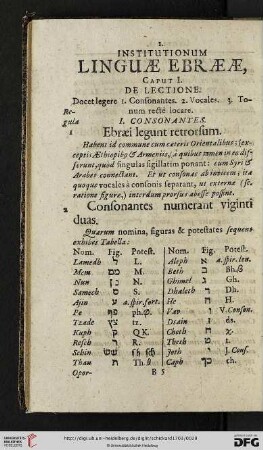 I.
INSTITUTIONUM
LINGUÆ EBRÆÆ,
CAPUT I.
DE LECTIONE.
Docet legere 1. Consonantes. 2. Vocales. 3. Tonum
recté locare.
Regula
I. CONSONANTES.
1 Ebræi legunt retrorsum.
Habent id commune cum cæteris Orientalibus; (exceptis
Æthiopibus & Armenis, a quibus tamen in eo differunt,
quod singulas sigillatim ponant: cum Syri &
Arabes connectant. Et ut consonas ab invicem; ita
quoque vocales à consonis separant, ut externa
ratione figuræ,) interdum prorsus abesse possint.
2 Consonantes numerant viginti
duas.
Quarum nomina, figuras & potestates sequens
exhibet Tabella:
Nom. Fig. Potest. Nom. Fig. Potest.
Lamedh ל L. Aleph א a.spir.len.
Mem מם M. Beth ב Bh.
Nun נן N. Ghimel ג Gh.
Samech ס S. Dhaleth ד Dh.
Ajin ע a.spir.fort. He ה H.
Pe פף ph. Vav ו V.Conson.
Tzade צץ tz. Dsain ז ds.
Kuph ק QK. Cheth ח
Resch ר R. Theth ט t.
Schin שש Joth י J.Cons.
Thau ת Th. Caph כך ch.
Opor-
B 5
http://digi.ub.uni-heidelberg.de/diglit/schickard1703/0029
© Universitätsbibliothek Heidelberg
UNIVERSITÄTS-
BIBLIOTHEK
HEIDELBERG
gefördert durch die
DFG